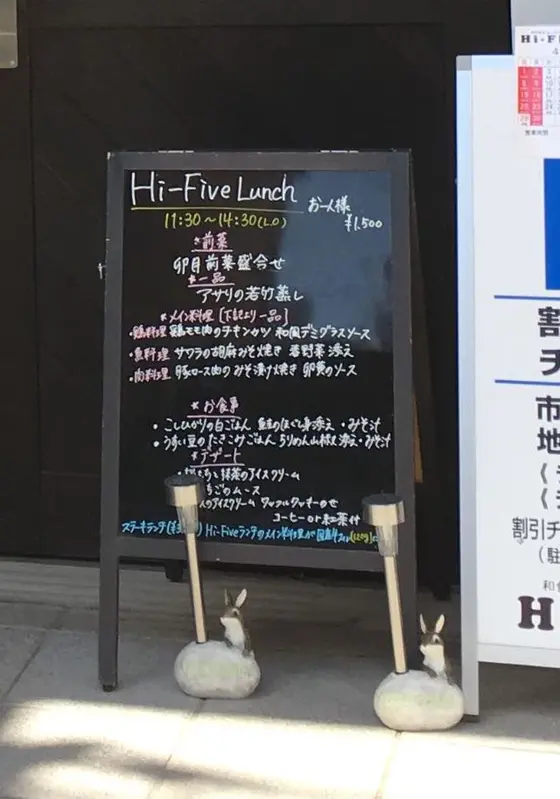 Hi-Five Lunch
お一人様
¥1,500
11:30～14:30(L.O)
*前菜
卯月前菜盛合せ
*一品
アサリの若竹蒸し
*メイン料理〔下記より一品〕
・鶏料理 鶏モモ肉のチキンカツ 和風デミグラスソース
・魚料理 サワラの胡麻みそ焼き 若野菜添え
・肉料理 豚ロース肉のみそ漬け焼き 卵黄のソース
*お食事
・こしひかりの白ごはん のほぐし身添え ・みそ汁
・うすい豆のたきこみごはん ちりめん山椒添え・みそ汁
*デザート
と抹茶のアイスクリーム
ちごのムース
のアイスクリーム ワッフルクッキーのせ
コーヒーor紅茶付
ステーキランチ Hi-Fiveランチのメイン料理が
Hi-F
4
営業時間
割
チ
市
地
割引チ
(駐
H